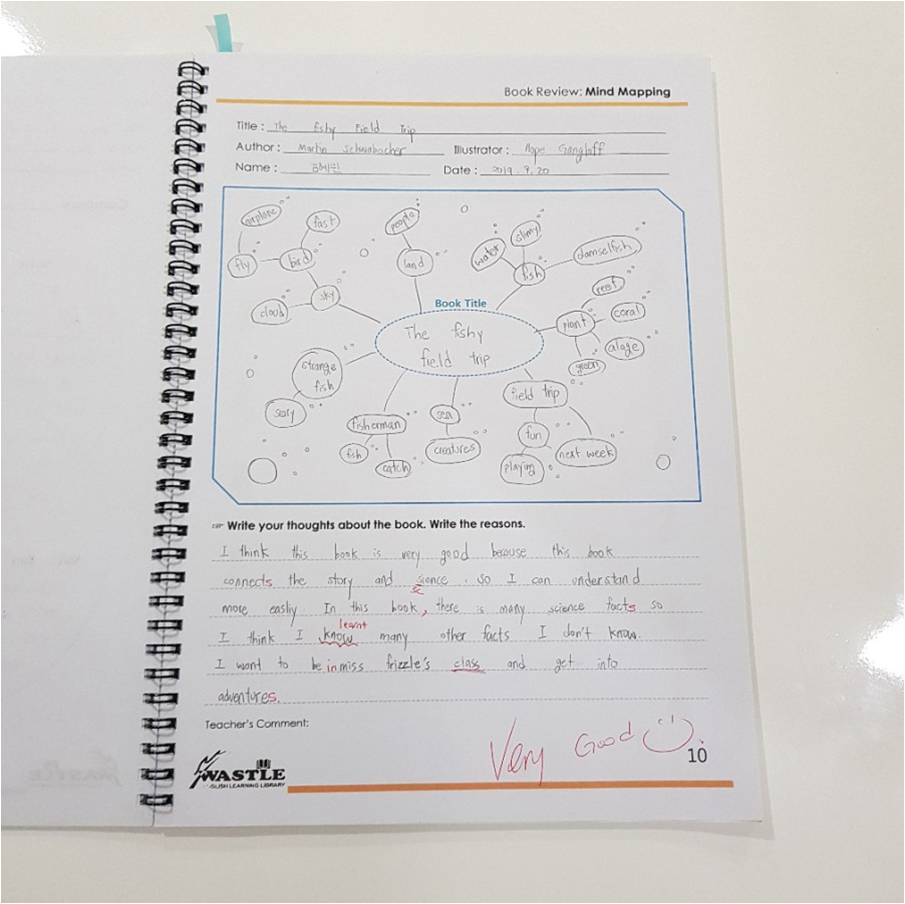 Book Review: Mind Mapping
Title : The fshy Field Trip
Author : Martin Schwabacher Illustrator : Hope Gangloff
Name : Date : 2019. 9. 20
airplane
fast
people
slimy
water
damselfish
fly
bird
land
fish
reef
sky
cloud
Book Title
plant
coral
The fshy
field trip
alage
green
strange
fish
scary
field trip
fisherman
sea
fun
fish
catch
creatures
playing
next week
Write your thoughts about the book. Write the reasons.
I think this book is very good because this book
connects the story and sience. so I can understand
c
more easliy In this book, there is many science facts so
learnt
I think I know many other facts I don't know.
I want to be in miss frizzle's class and get into
adventures.
Teacher's Comment:
Very Good
10
WASTLE
GLISH LEARNING LIBRARY